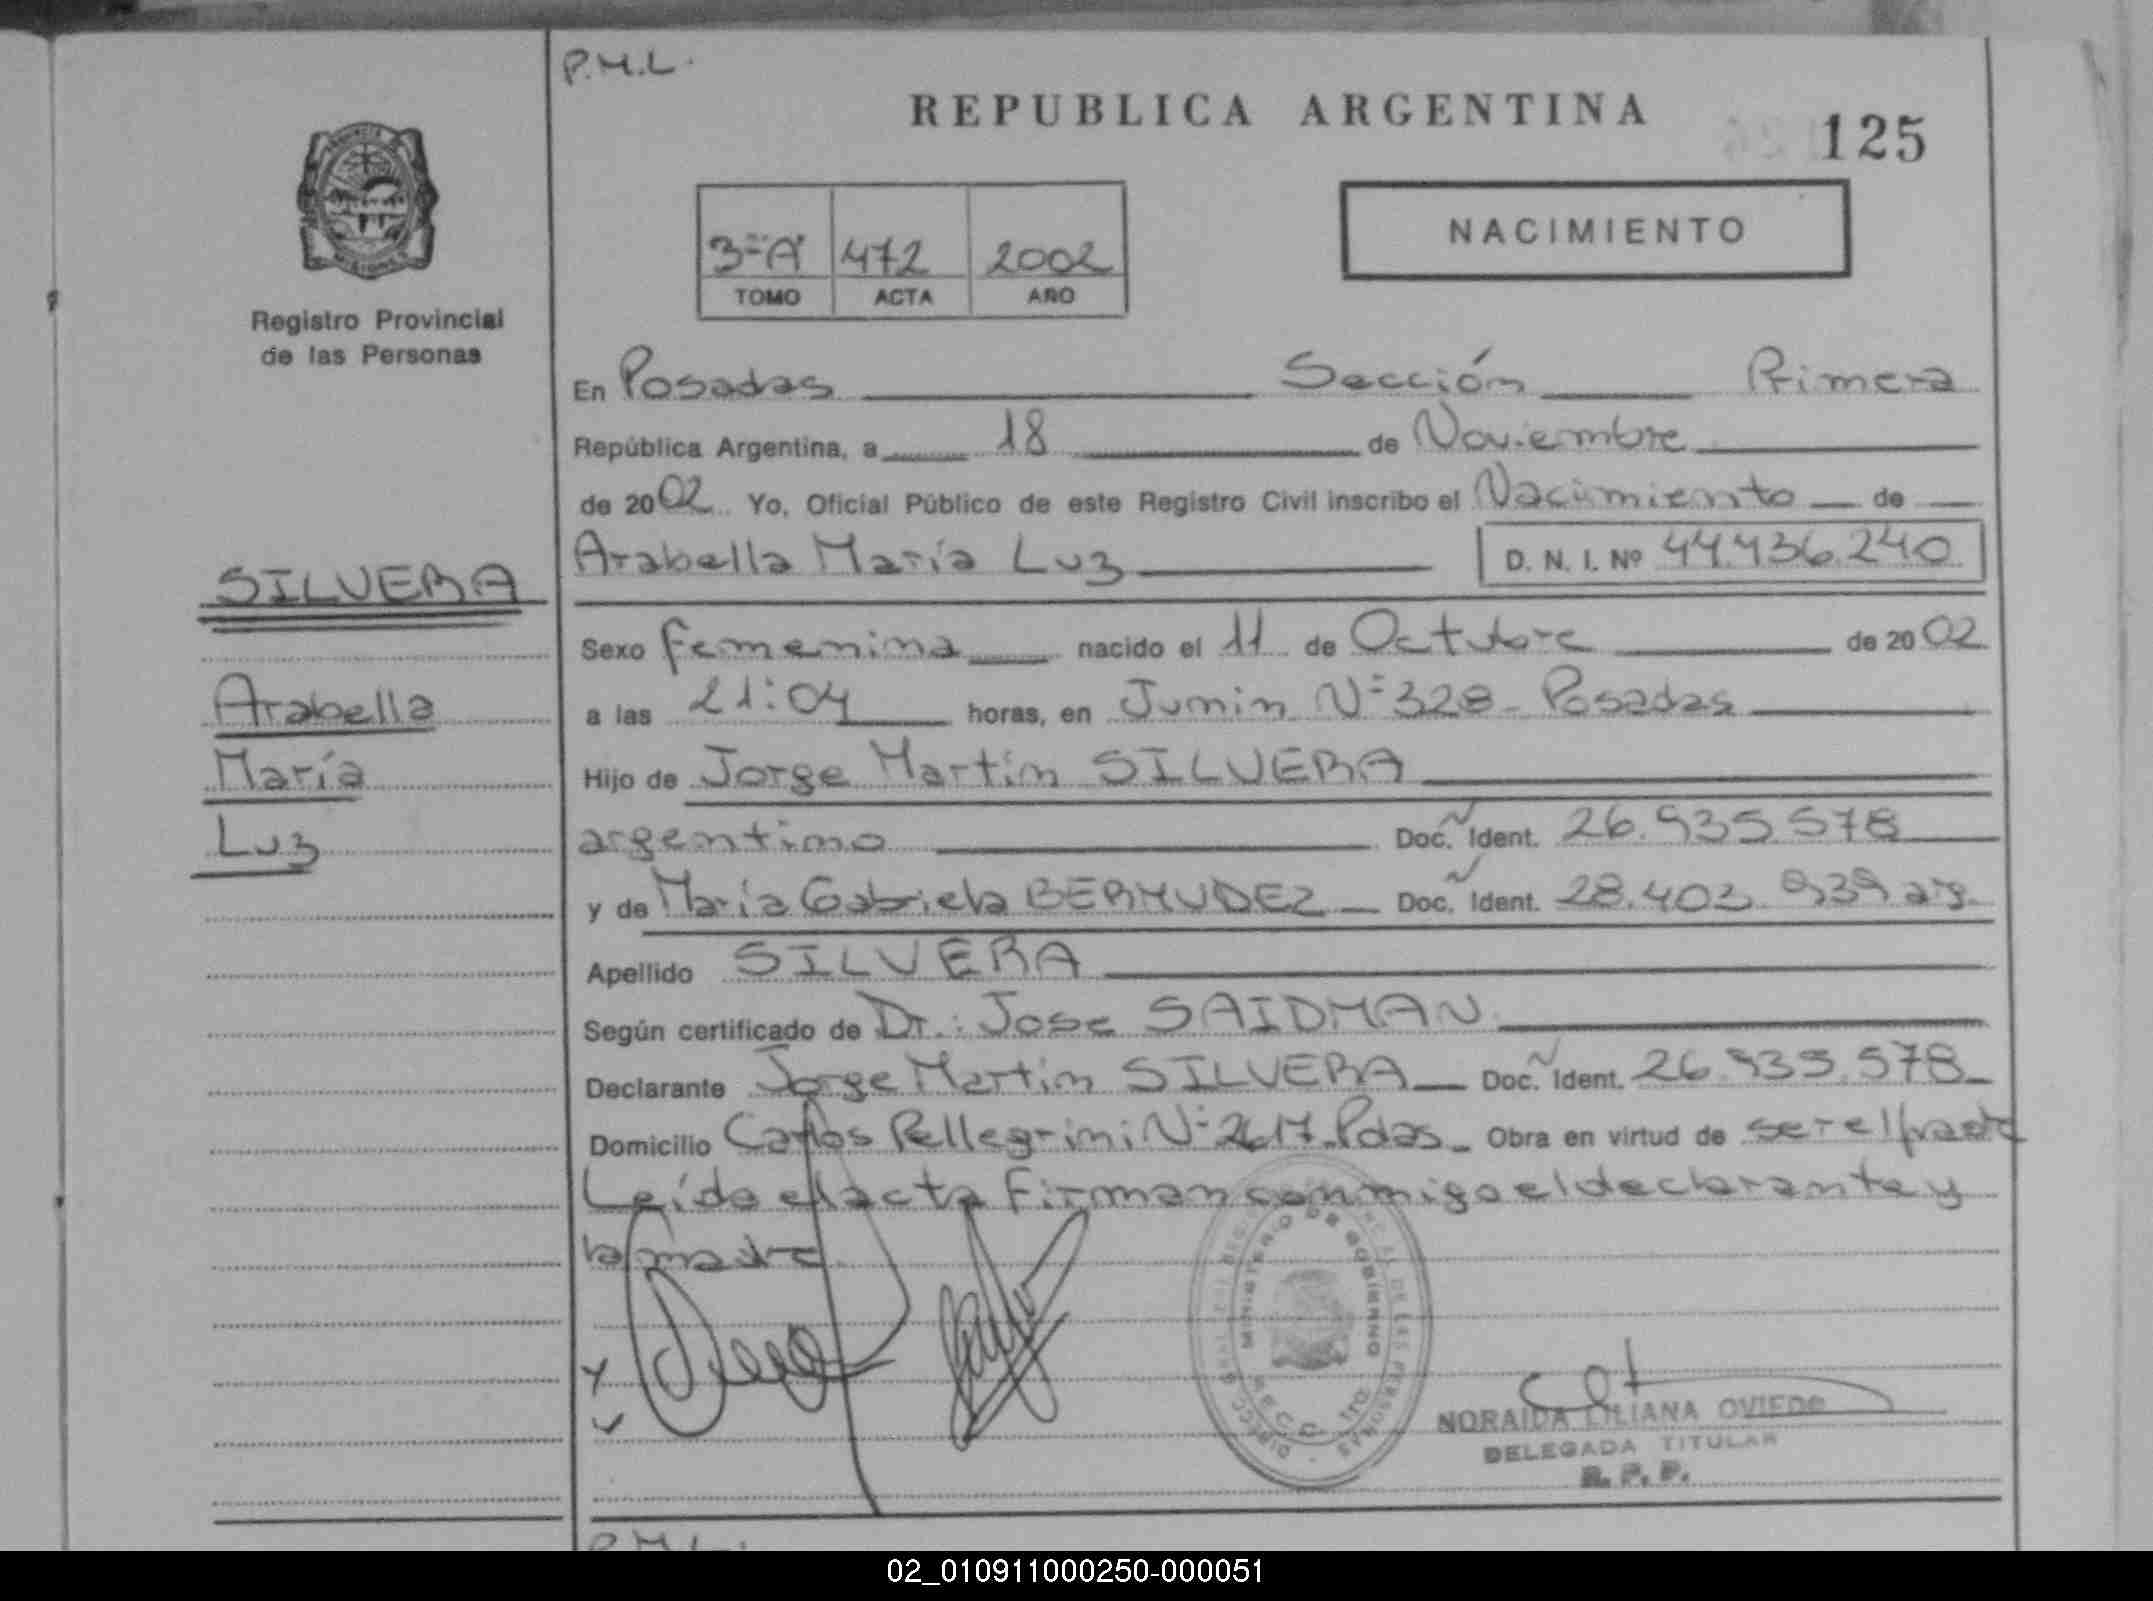 P.M.L.
REPUBLICA ARGENTINA
125
3º "A" 472 2002
TOMO ACTA AÑO
NACIMIENTO
Registro Provincial
de las Personas
En Posadas Sección Primera
República Argentina, a 18 de Noviembre
de 2002 Yo, Oficial Público de este Registro Civil inscribo el Nacimiento de
Arabella María Luz D. N. I. Nº 44.436.240
SILVERA
Arabella
María
Luz
Sexo femenina nacido el 11 de Octubre de 2002
a las 21:04 horas, en Junin Nº 328 - Posadas
Hijo de Jorge Martin SILVERA
argentino Doc. Ident. 26.935.578
y de María Gabriela BERMUDEZ Doc. Ident. 28.403.939 arg.
Apellido SILVERA
Según certificado de Dr.: Jose SAIDMAN
Declarante Jorge Martin SILVERA Doc. Ident. 26.935.578
Domicilio Carlos Pellegrini Nº 2617 Pdas. Obra en virtud de ser el padre
Leída el acta firman conmigo el declarante y
la madre.
MINISTERIO DE GOBIERNO
NORAIDA LILIANA OVIEDO
DELEGADA TITULAR
R. P. P.
P.M.L.
02_010911000250-000051